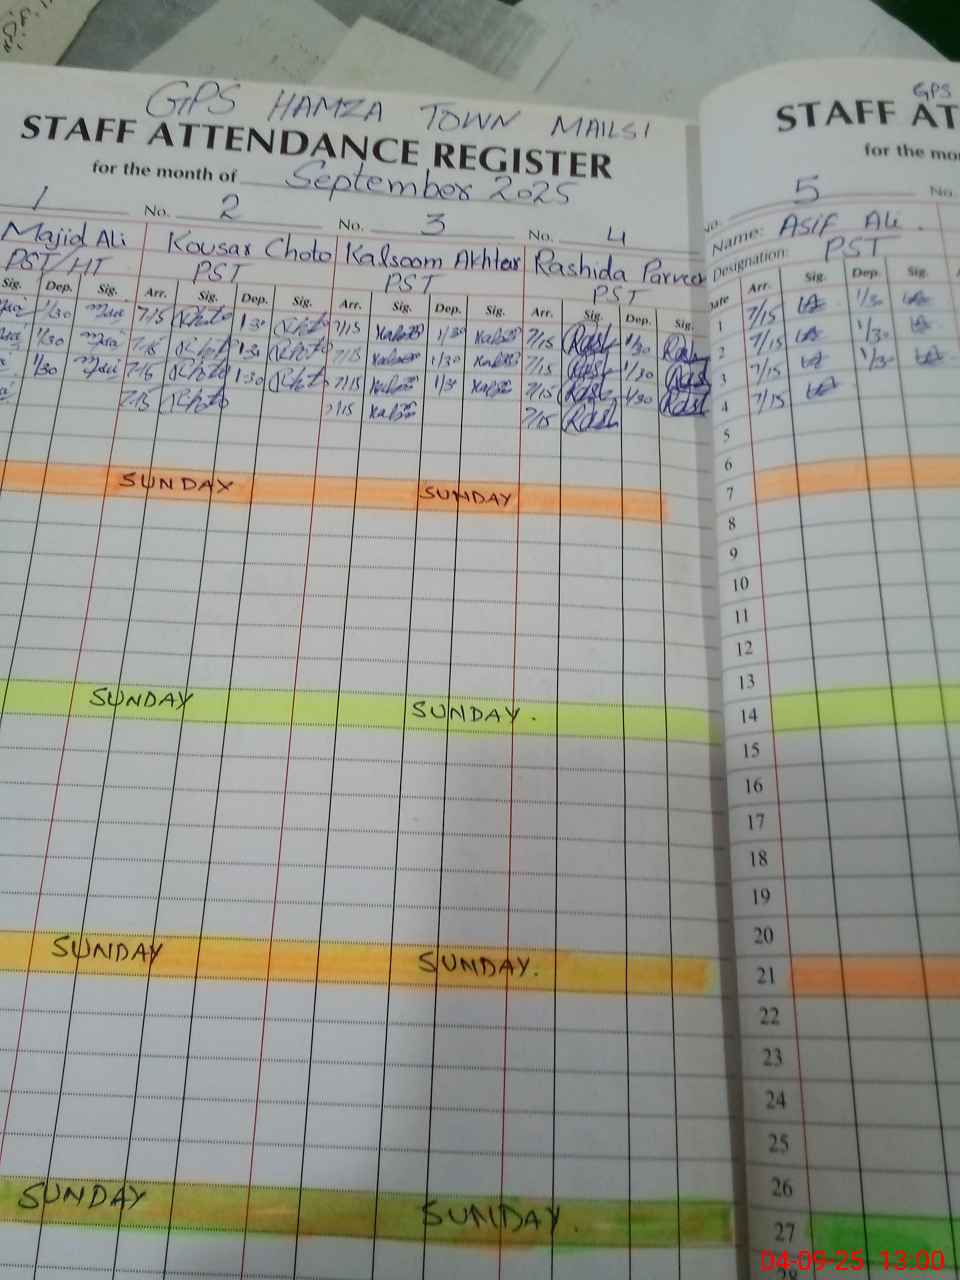 GPS HAMZA TOWN MAILSI
STAFF ATTENDANCE REGISTER
for the month of September 2025
1 No. 2 No. 3 No. 4
Majid Ali Kousar Choto Kalsoom Akhtar Rashida Parveen
PST/HT PST PST PST
Sig. Dep. Sig. Arr. Sig. Dep. Sig. Arr. Sig. Dep. Sig. Arr. Sig. Dep. Sig.
1/30 7/15 1:30 7/15 1/30 7/15 Rash 1/30
1/30 7/15 1:30 7/15 1/30 7/15 Rash 1/30 Rash
1/30 7/15 1:30 7/15 1/30 7/15 Rash 1/30 Rash
7/15 7/15 7/15 Rash
SUNDAY SUNDAY
SUNDAY SUNDAY.
SUNDAY SUNDAY.
SUNDAY SUNDAY.
GPS
STAFF AT
for the mo
No. 5 No.
Name: Asif Ali.
Designation: PST
Date Arr. Sig. Dep. Sig.
1 7/15 1/30
2 7/15 1/30
3 7/15 1/30
4 7/15
5
6
7
8
9
10
11
12
13
14
15
16
17
18
19
20
21
22
23
24
25
26
27
28
04-09-25 13:00